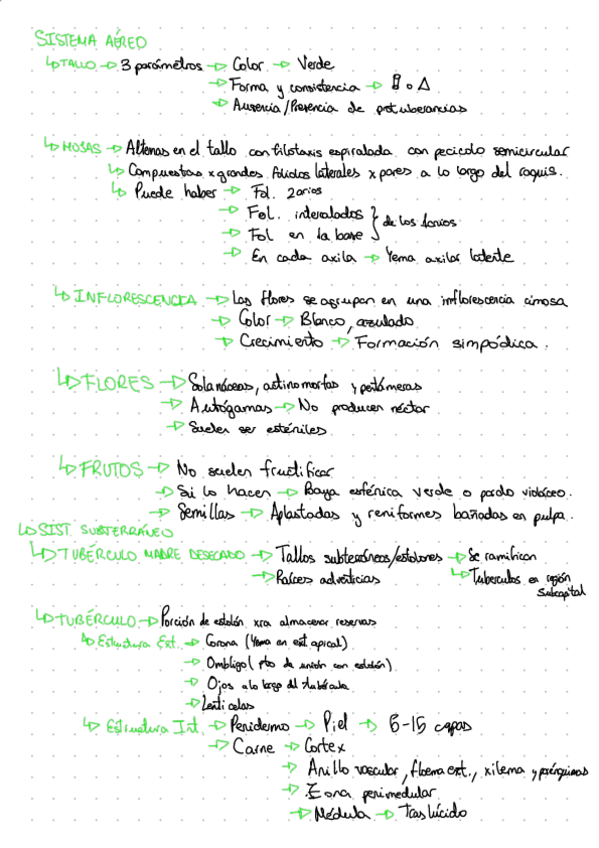 SISTEMA AÉREO
↳ TALLO → 3 parámetros → Color → Verde
→ Forma y consistencia → o Δ
→ Ausencia/Presencia de protuberancias
↳ HOJAS → Alternas en el tallo con filotaxis espiralada con peciolo semicircular
↳ Compuestas x grandes foliolos laterales x pares a lo largo del raquis.
↳ Puede haber → Fol. 2arios
→ Fol. intercalados } de los 1arios
→ Fol en la base
→ En cada axila → Yema axilar latente
↳ INFLORESCENCIA → Las flores se agrupan en una inflorescencia cimosa
→ Color → Blanco, azulado
→ Crecimiento → Formación simpódica.
↳ FLORES → Solanáceas, actinomorfas y pentámeras
→ Autógamas → No producen néctar
→ Suelen ser estériles
↳ FRUTOS → No suelen fructificar
→ Si lo hacen → Baya esférica verde o pardo violáceo.
→ Semillas → Aplastadas y reniformes bañadas en pulpa.
↳ SIST. SUBTERRÁNEO
↳ TUBÉRCULO MADRE DESECADO → Tallos subterráneos/estolones → Se ramifican
→ Raíces adventicias ↳ Tuberculos en región
subapical
↳ TUBÉRCULO → Porción de estolón xra almacenar reservas
↳ Estructura Ext. → Corona (Yema en ext apical)
→ Ombligo (pto de unión con estolón)
→ Ojos a lo largo del tubérculo
→ Lenticelas
↳ Estructura Int. → Peridermo → Piel → 5-15 capas
→ Carne → Cortex
→ Anillo vascular, floema ext., xilema y parénquimas
→ Zona perimedular
→ Médula → Traslúcido